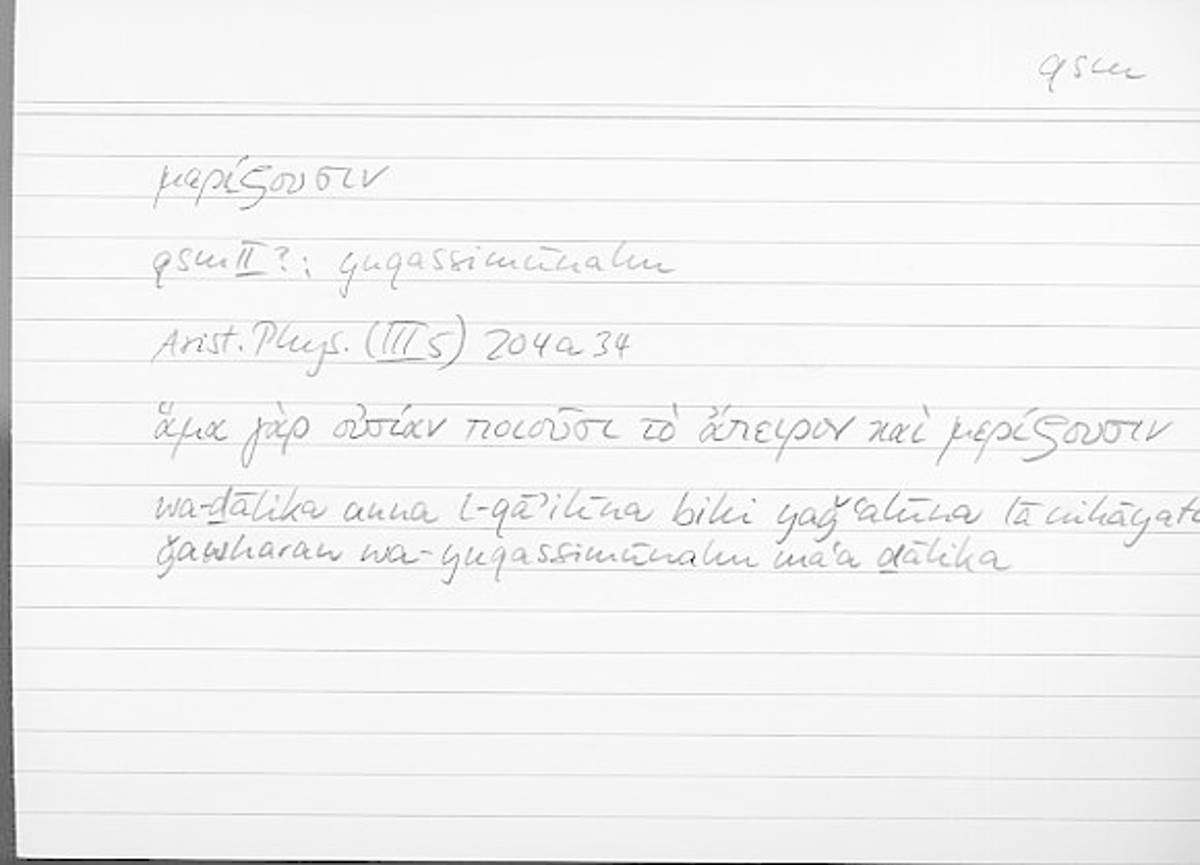 qsm
μαρίζουσιν
qsm II ? : yuqassimūnahu
Arist. Phys. (III 5) 204a 34
ἅμα γὰρ οὐσίαν ποιοῦσι τὸ ἄπειρον καὶ μερίζουσιν
wa-ḏālika anna l-qāʾilīna bihi yaǧʿalūna lā nihāyata
ǧawharan wa-yuqassimūnahu maʿa ḏālika